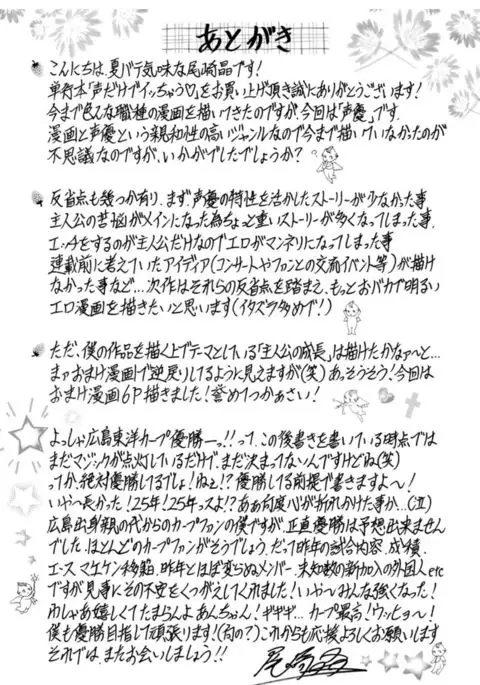 あとがき
こんにちは、夏バテ気味な尾崎晶です!
単行本「声だけでイッちゃう♡」をお買い上げ頂き誠にありがとうございます!
今まで色んな職種の漫画を描いてきたのですが、今回は「声優」です。
漫画と声優という親和性の高いジャンルなので今まで描いていなかったのが
不思議なのですが、いかがでしたでしょうか?
反省点も幾つか有り、まず声優の特性を活かしたストーリーが少なかった事、
主人公の苦悩がメインになった為ちょっと重いストーリーが多くなってしまった事、
エッチをするのが主人公だけなのでエロがマンネリになってしまった事
連載前に考えていたアイディア(コンサートやファンとの交流イベント等)が描け
なかった事など…次作はそれらの反省点を踏まえ、もっとおバカで明るい
エロ漫画を描きたいと思います(イタズラ多めで!)
ただ、僕の作品を描く上でテーマとしている「主人公の成長」は描けたかなァ〜と…
まァおまけ漫画で逆戻りしてるように見えますが(笑)あっそうそう!今回は
おまけ漫画6P描きました!誉めてつかぁさい!
よっしゃ広島東洋カープ優勝ーっ!!って、この後書きを書いている時点では
まだマジックが点灯しているだけで、まだ決まってないんですけどね(笑)
ってか絶対優勝してるでしょ!ねぇ!?優勝してる前提で書きますよー!
いや〜長かった!25年!25年っスよ!?あぁ何度心が折れかけた事か…(泣)
広島出身、親の代からのカープファンの僕ですが、正直優勝は予想出来ません
でした。ほとんどのカープファンがそうでしょう。だって昨年の試合内容、成績、
エースマエケン移籍、昨年とほぼ変らぬメンバー、未知数の新加入の外国人etc
ですが見事にその不安をくつがえしてくれました!いや〜みんな強くなった!
わしゃあ嬉しくてたまらんよあんちゃん!ギギギ…カープ最高!ウッヒョ〜!
僕も優勝目指して頑張ります!(何の?)これからも応援よろしくお願いします
それでは、またお会いしましょう!!
尾崎晶